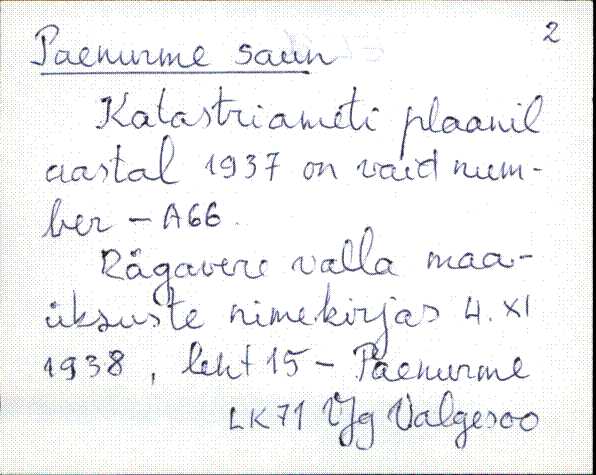 2
Paenurme saun
Katastriameti plaanil
aastal 1937 on vaid num-
ber – A66.
Rägavere valla maa-
üksuste nimekirjas 4. XI
1938, leht 15 – Paenurme
LK71 VJg Valgesoo